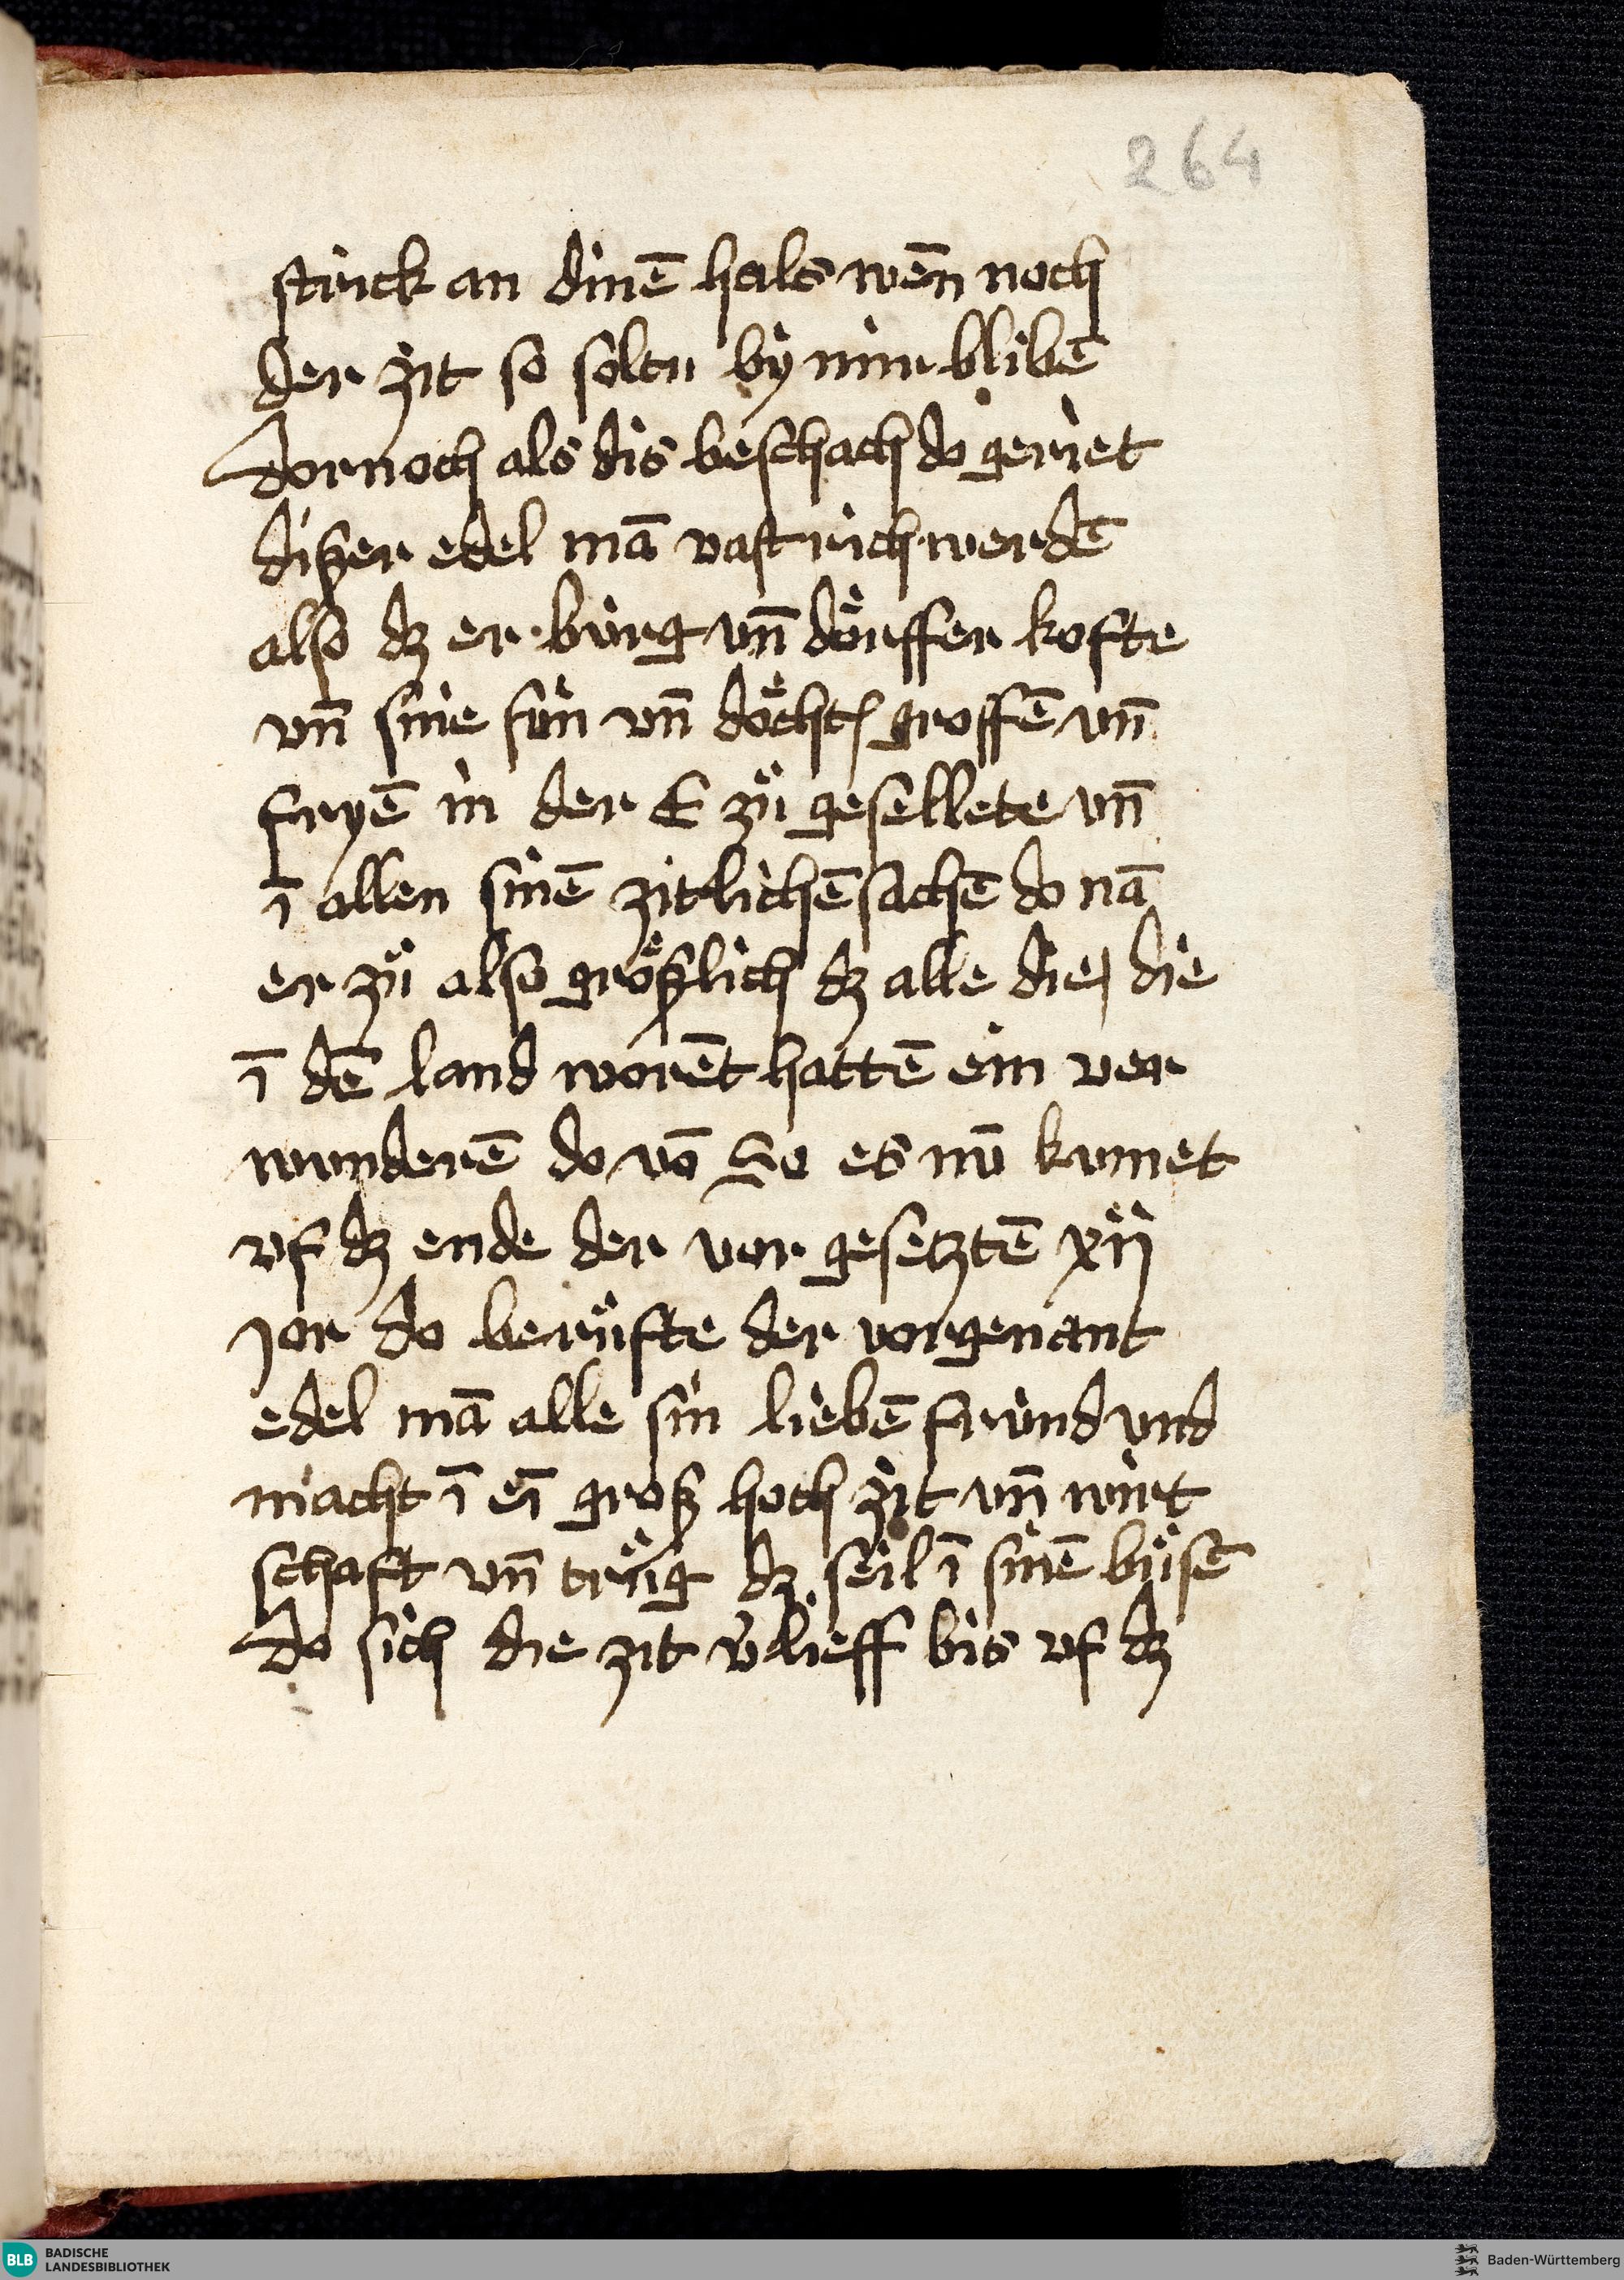 264
strick an dinē hals wēn noch
der zit so soltu by mir blibē
dornoch als dis beschach do geriet
dißer edel mā vast rich werdē
also dz er bürg vn̄ dörffer kofte
vn̄ sine sün vn̄ döcht͛ groffē vn̄
fryē in der E zü gesellete vn̄
ī allen sinē zitlichē sachē do nā
er zü also größlich dz alle die die
ī dē land worēt hattē ein ver
wunderē do vō So es nū kumet
vf dz ende der vor gesetztē xii
jor do berüfte der vorgenant
edel mā alle sin liebē fründ vnd
macht ī eī groß hoch zit vn̄ wirt
schaft vn̄ trüg dz seil ī sinē büsē
do sich die zit v̄lieff bis vf dz
BLB BADISCHE
LANDESBIBLIOTHEK
Baden-Württemberg